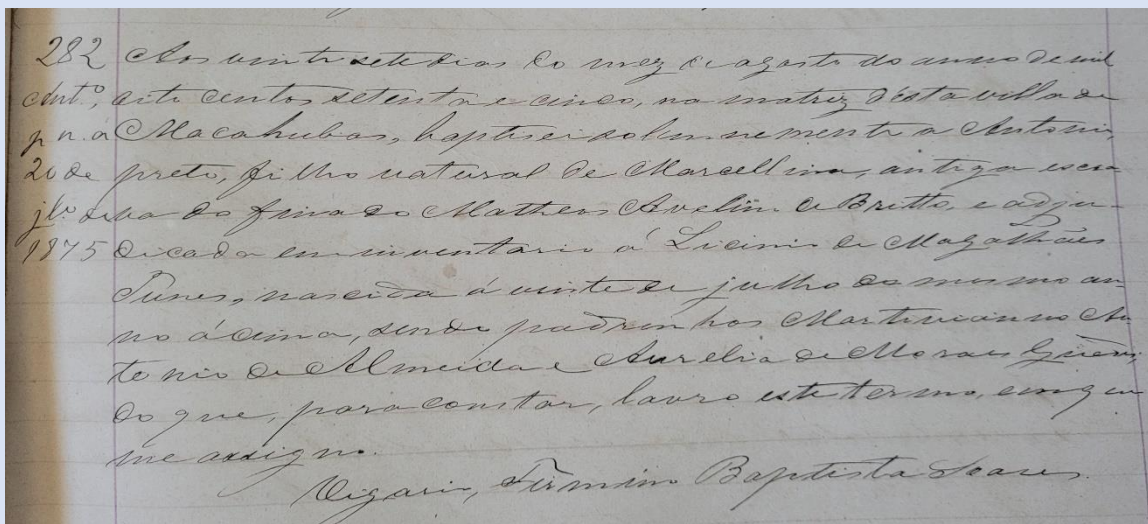 282 Aos vinte sete dias do mez de agosto do anno de mil
Antº, oito centos setenta e cinco, na matriz d'esta villa de
p. n. á Macahubas, baptisei solemnemente a Antonio,
20 de preto, filho natural de Marcellina, antiga escra-
jlº de va do finado Matheos Avelino de Britto, e adju-
1875 dicada em inventario á Licinio de Magalhães
nascida á vinte de julho do mesmo an-
no ácima, sendo padrinhos Martiniano An-
tonio de Almeida e Aurelia de Moraes
do que, para constar, lavro este termo, em que
me assigno.
Vigario, Firmino Baptista Soares.